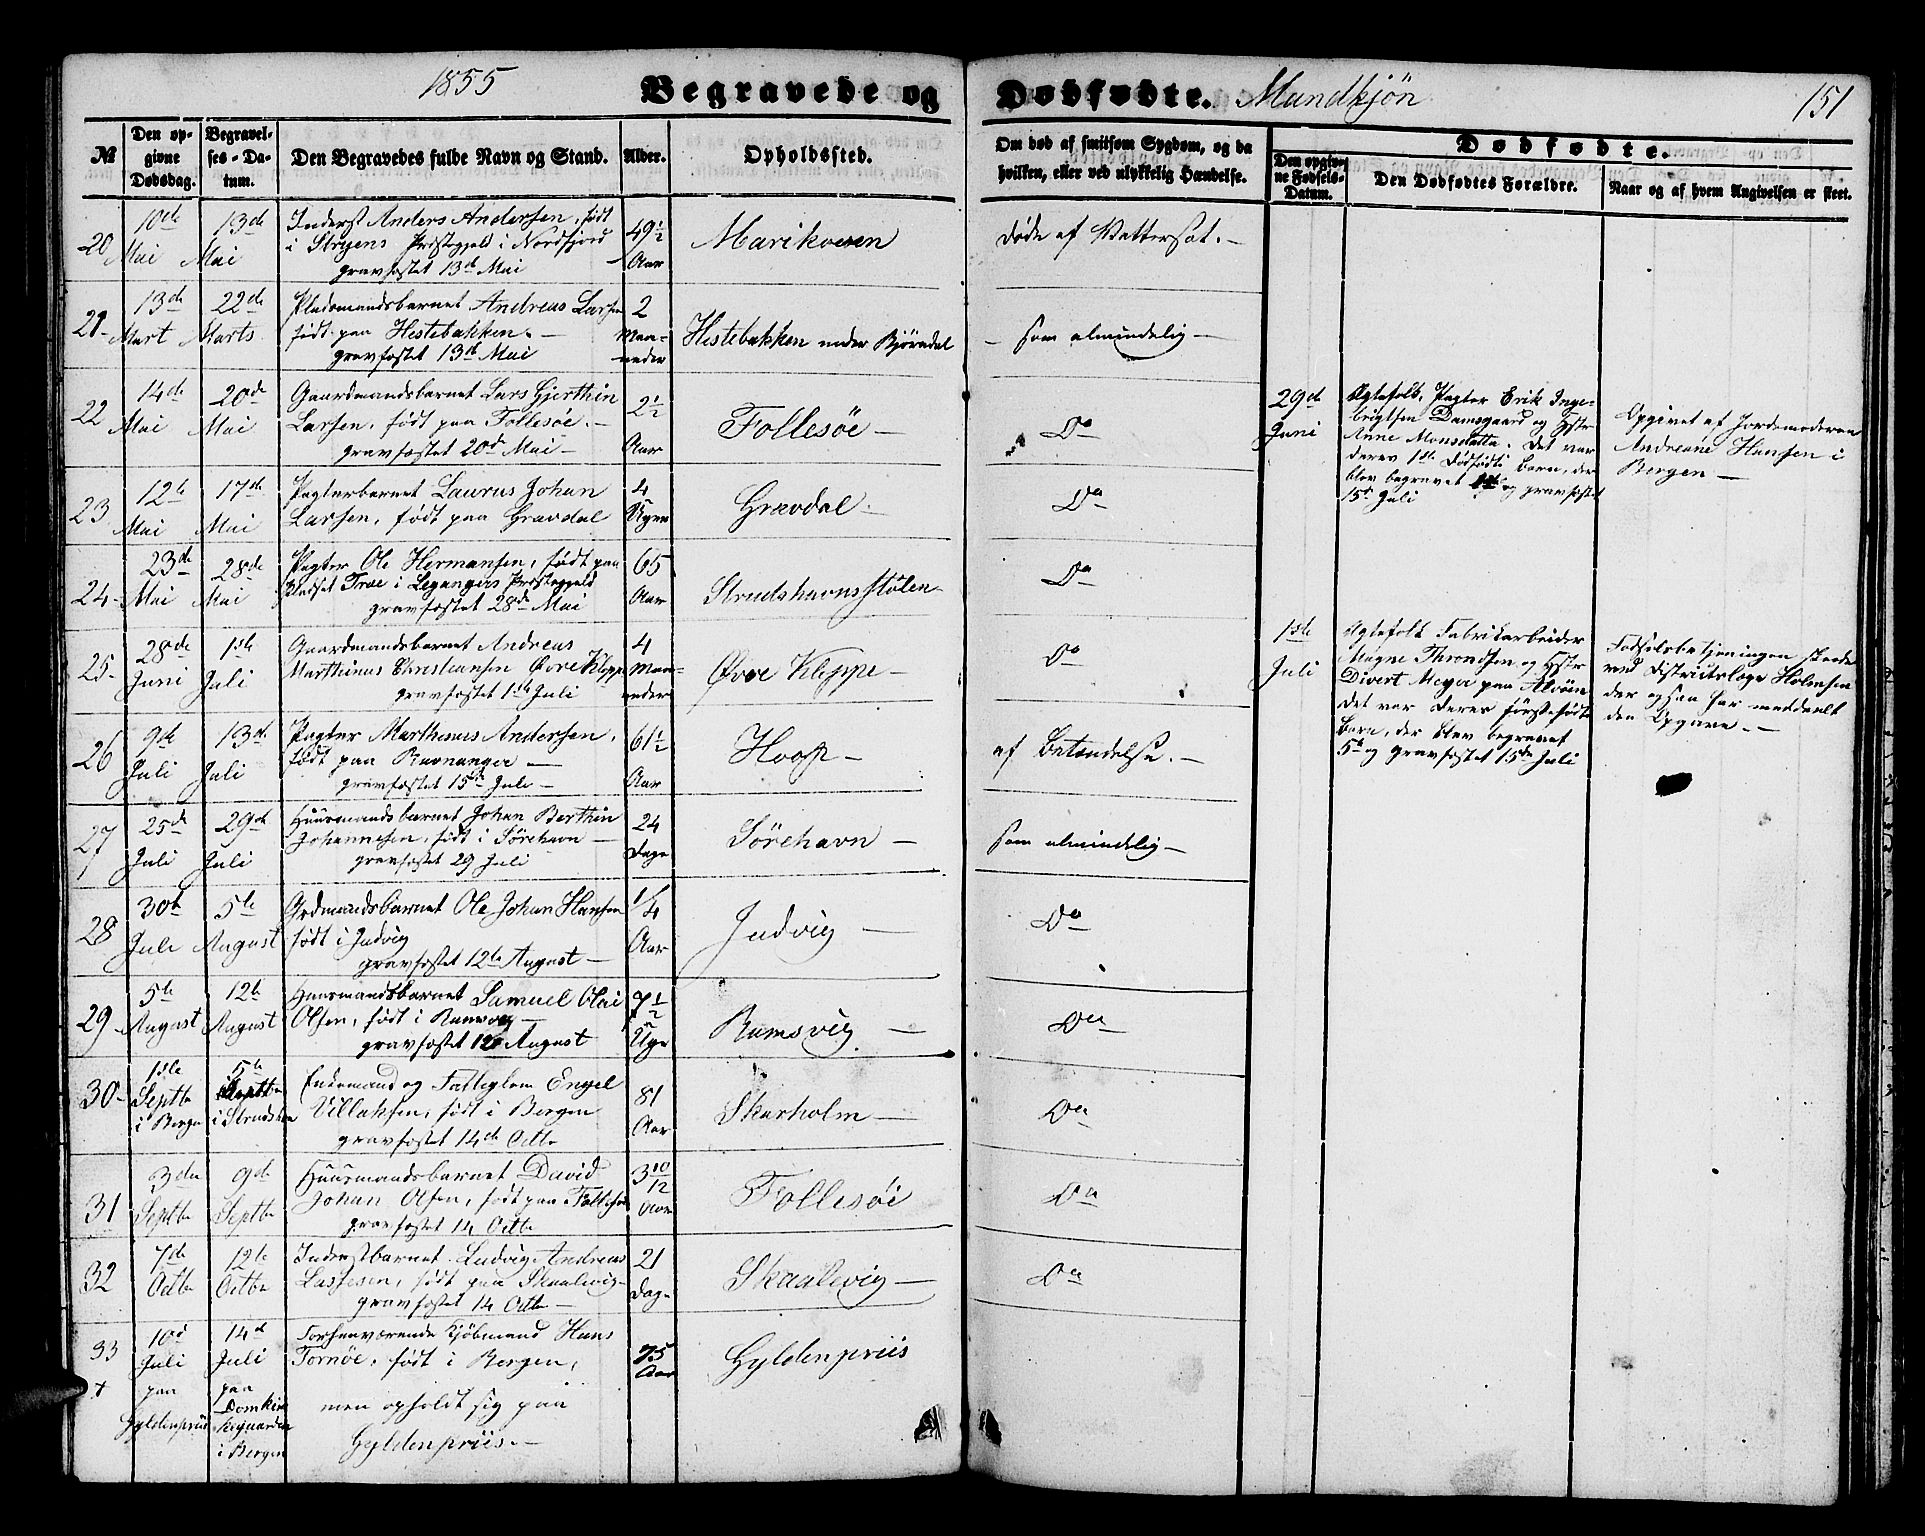 1855
Begravede og Dødfødte. Mandkjøn
151
№
Den opgivne Dødsdag.
Begravelses-Datum.
Den Begravedes fulde Navn og Stand.
Alder.
Opholdssted.
Om død af smitsom Sygdom, og da hvilken, eller ved ulykkelig Hændelse.
Dødfødte.
Den opgivne Fødsels-Datum.
Den Dødfødtes Forældre.
Naar og af hvem Angivelsen er skeet.
20
10de Mai
13de Mai
Inderst Anders Andersen, født
i Stryens Præstegjeld i Nordfjord
gravfæstet 13de Mai
49½ Aar
Døde af Vattersot. —
21
13de Mart
22de Marts
Pladsmandsbarnet Andreas Larsen
født paa Hestebakken. —
gravfæstet 13de Mai
2 Maaneder
Hestebakken under Bjørndal
— som almindelig —
22
14de Mai
20de Mai
Gaardmandsbarnet Lars Gjerthin
Larsen, født paa Follesøe. —
gravfæstet 20de Mai —
2½ Aar
Follesøe —
Do
23
12te Mai
17de Mai
Pagterbarnet Laurus Johan
Larsen, født paa Gravdal
4 Uger
Gravdal —
Do
24
23de Mai
28de Mai
Pagter Ole Hermansen, født paa
Pladset Træe i Legangers Præstegjeld
gravfæstet 28de Mai
65 Aar
Strudshavnsstølen
Do
25
28de Juni
1ste Juli
Gaardmandsbarnet Andreas
Marthinus Christiansen Øvre Kleppe
gravfæstet 1ste Juli
4 Maaneder
Øvre Kleppe —
Do
26
9de Juli
13de Juli
Pagter Marthinus Andersen,
født paa Ravnanger —
gravfæstet 15de Juli —
61½ Aar
Hoop —
af Betændelse. —
27
25de Juli
29de Juli
Huusmandsbarnet Johan Berthin
Johannesen, født i Sørehavn —
gravfæstet 29 Juli
24 Dage
Sørehavn —
som almindelig —
28
30te Juli
5te August
Grdmandsbarnet Ole Johan Hansen
født i Indvig
gravfæstet 12te August —
1/4 Aar
Indvig —
Do
29
5te August
12te August
Huusmandsbarnet Samuel Olai
Olsen, født i
gravfæstet 12 August
7½ Uge
Ramsvig —
Do
30
1ste Septbr i Bergen
5te Septbr
Enkemand og Fattiglem Engel
Villaksen, født i Bergen
gravfæstet 14de Octbr
81 Aar
Skarholm —
Do
31
3die Septbr
9de Septbr
Huusmandsbarnet David
Johan Olsen, født paa Follesøe
gravfæstet 14 Octbr
3 10/12 Aar
Follesøe
Do
32
7de Octbr
12te Octbr
Inderstbarnet Ludvig Andreas
Lassesen, født paa Skaalevig —
gravfæstet 14 Octbr —
21 Dage
Skaalevig —
Do
33
10de Juli paa Gyldenpriis
14de Juli paa Domkirkegaarden i Bergen
Forhenværende Kjøbmand Hans
Tornøe, født i Bergen,
men opholdt sig paa
Gyldenpriis. —
75 Aar
Gyldenpriis
29de Juni
Ægtefolk, Pagter Erik Inge-
brigtsen Damsgaard og Hstr
Anne Monsdatter. Det var
deres 1ste Dødfødte barn, der
blev begravet og gravfæstet
15de Juli
Opgivet af Jordemoderen
Andreane Hansen i
Bergen —
1ste Juli
Ægtefolk Fabrikarbeider
Magne Throndsen og Hstr
Divert Meyer paa Alvøen
Det var deres førstefødte
barn, der blev begravet
5te og gravfæstet 15de Juli
Fødselsbetjeningen skede
ved Districtslæge Holmsen
der ogsaa har meddeelt
den Opgave. —